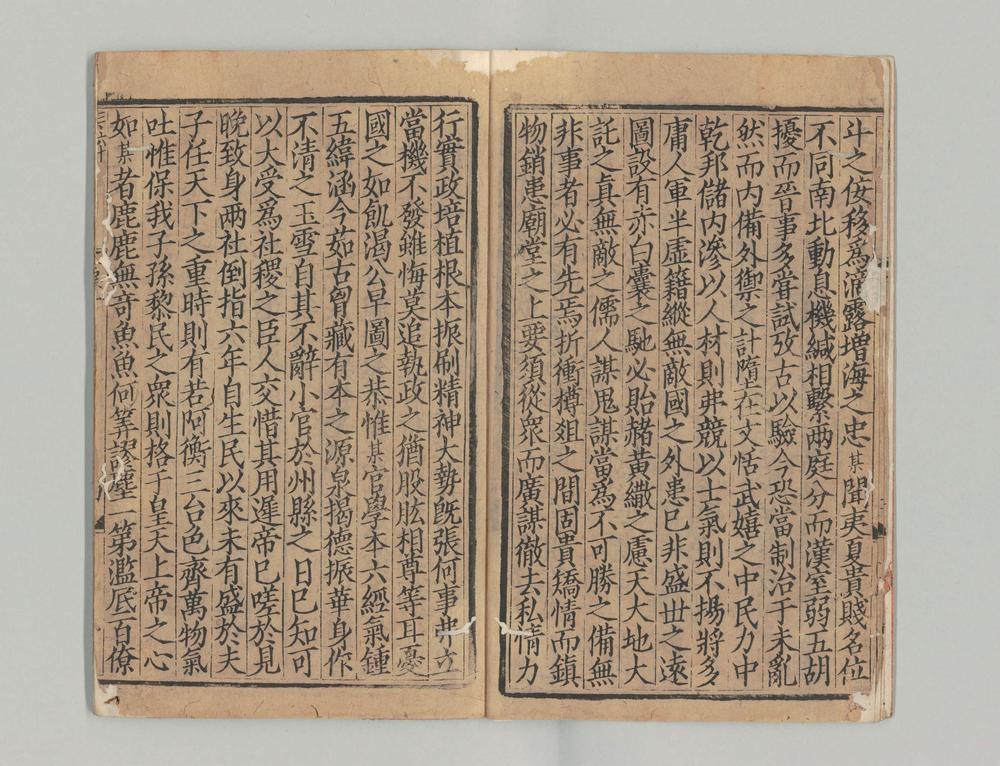 斗之佞移爲滴露増海之忠某聞夷夏貴賤名位
不同南北動息機緘相繫兩庭分而漢室弱五胡
擾而晉事多甞試攷古以驗今恐當制治于未亂
然而内備外禦之計隳在文恬武嬉之中民力中
乾邦儲内滲以人材則弗競以士氣則不揚將多
庸人軍半虛籍縱無敵國之外患已非盛世之遠
圖設有赤白囊之馳必貽赭黄繖之慮天大地大
託之眞無敵之儒人謀鬼謀當爲不可勝之備無
非事者必有先焉折衝樽爼之間固貴矯情而鎮
物銷患廟堂之上要須從衆而廣謀徹去私情力
行實政培植根本振刷精神大勢旣張何事弗立
當機不發雖悔莫追執政之猶股肱相尊等耳憂
國之如飢渇公早圖之恭惟某官學本六經氣鍾
五緯涵今茹古曾藏有本之源泉揭德振華身作
不清之玉雪自其不辭小官於州縣之日已知可
以大受爲社稷之臣人交惜其用遲帝已嗟於見
晩致身兩社倒指六年自生民以來未有盛於夫
子任天下之重時則有若阿衡三台色齊萬物氣
吐惟保我子孫黎民之衆則格于皇天上帝之心
如某者鹿鹿無竒魚魚何等謬塵一第濫底百僚